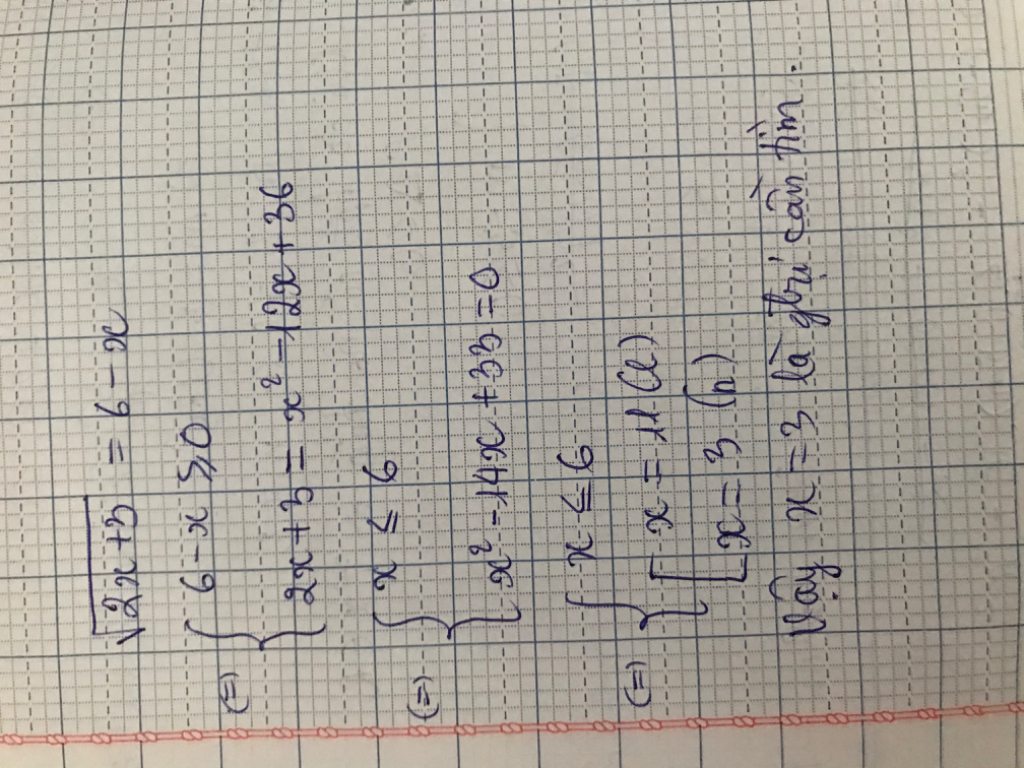 √2x+3 = 6 - x
(=) { 6 - x ⩾ 0
2x + 3 = x² - 12x + 36
(=) { x ≤ 6
x² - 14x + 33 = 0
(=) { x ≤ 6
[ x = 11 (l)
x = 3 (n)
Vậy x = 3 là gtrị cần tìm.